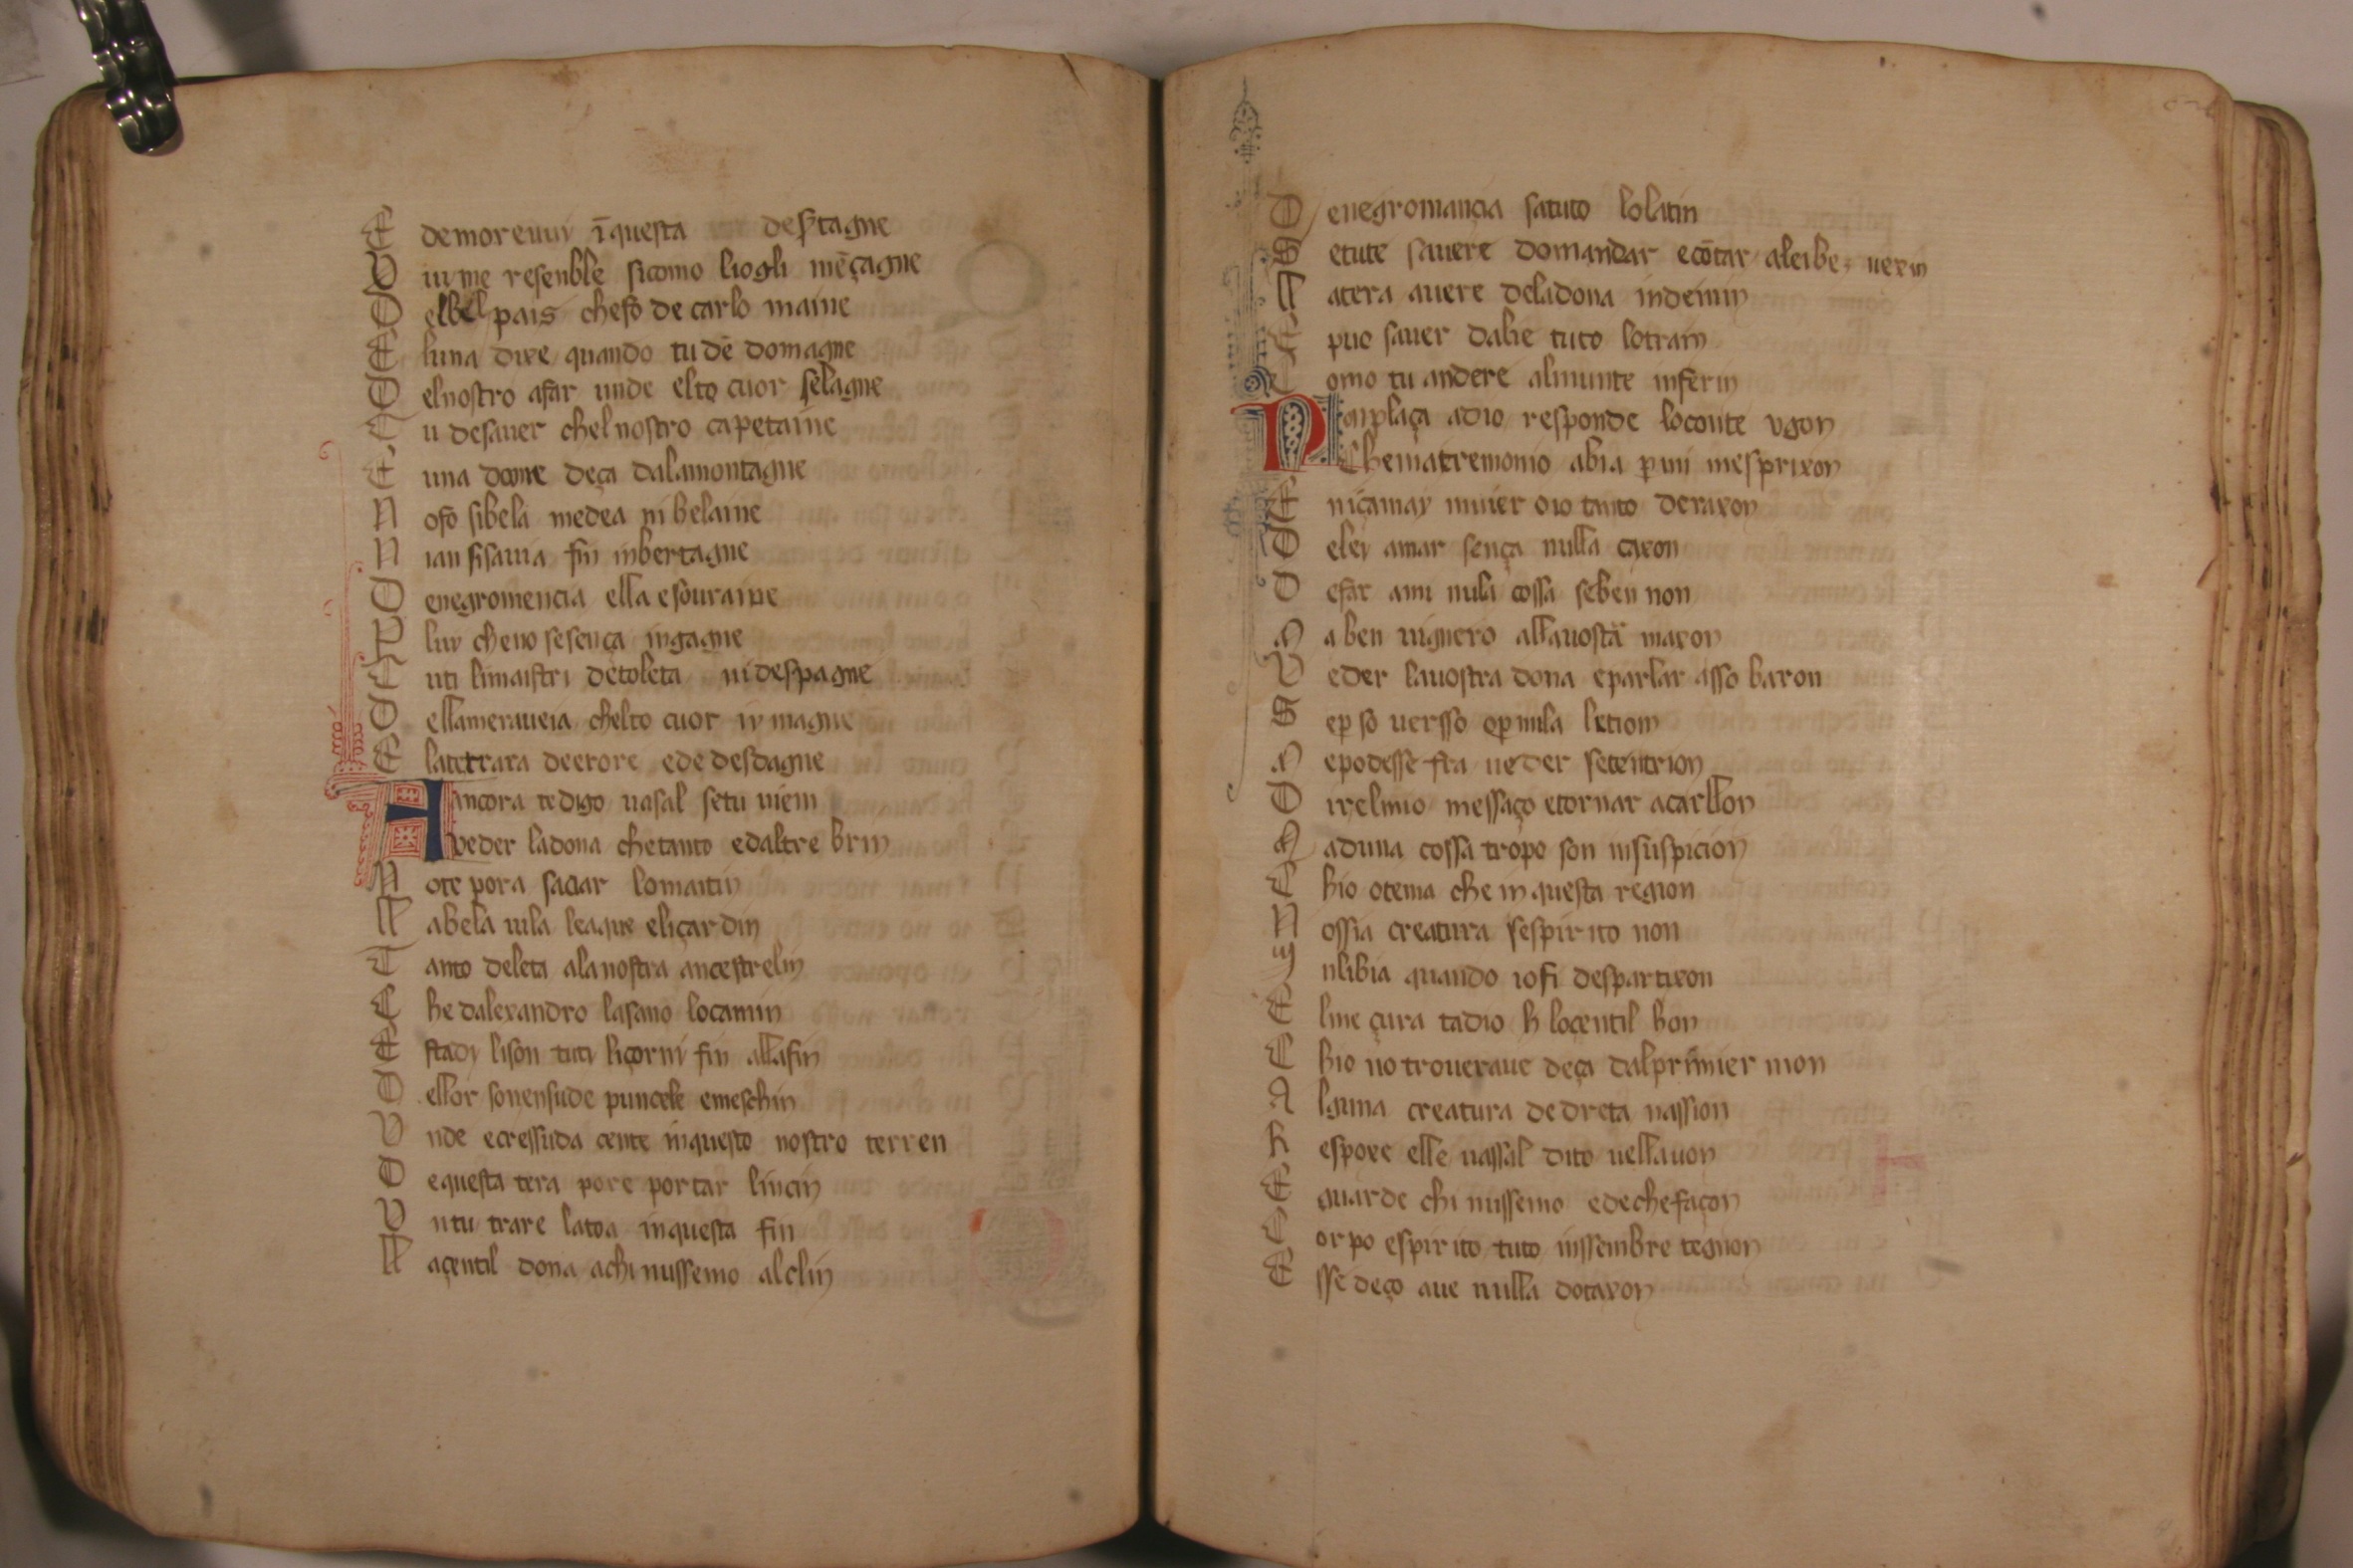 E demoremin ĩ questa destagne
V iu me resenble sicomo liogli mẽçagne
D elbel pais chefo de carlo maine
E luna dixe quando tu dẽ domagne
D elnostro afar unde elto cuor selagne
T u desauer chel nostro capetaine
E una dome deça dalamontagne
N ofo sibela medea ni belaine
N ian sisauia fin inbertagne
D enegromencia ella esouraine
P luy cheno sesença ingagne
T uti limaistri detoleta ni despagne
D ellameraueia chelto cuor iy magne
E laterrara deerore ede desdagne
A ancora tedigo uasal setu uiem
A ueder ladona chetanto edaltre brin
N ote pora saciar lomaitin
L abela uila leaque eliçardin
T anto deleta alanostra ancestrelin
C he dalexandro lasano locamin
E stadi lison tuti liçorni fin allafin
D ellor sonensude puncele emeschin
V nde ecressuda cente inquesto nostro terren
D equesta tera pore portar lincin
V ntu trare latoa inquesta fin
L açentil dona achi nussemo alclin
D enegromançia satuto lolatin
S etute sauere domandar ecõtar aleibe uerin
L atera auere deladona indeiuin
E puo sauer dabe tuto lotrain
C omo tu andere almunte inferin
N onplaça adio responde loconte vgon
Chematremonio abia p mi mesprixon
E niçamay muier oio tanto deraxon
D elei amar sença nulla caxon
D efar ami nula cossa seben non
M a ben uignero allauosta maxon
V eder lauostra dona eparlar asso baron
S ep so uersso op nula letion
M epodesse fra ueder setentrion
D irelmio messaço etornar acarllon
M aduna cossa tropo son insuspicion
C hio otema che in questa region
N ossia creatura sespirito non
I nlibia quando iofi despartixon
E lme çura tadio h loçentil hon
C hio no troueraue deça dalprimier mon
A lguna creatura dedreta nassion
R espoxe elle uassal dito uellauon
E guarde chi nussemo edechefaçon
C orpo espirito tuto inssembre tegnon
E sse deço aue nulla dotaxon